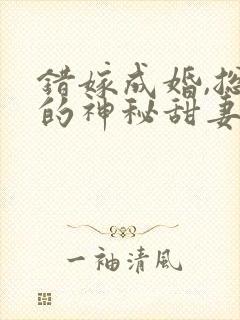 错嫁成婚,总
的神秘甜妻
一袖清風